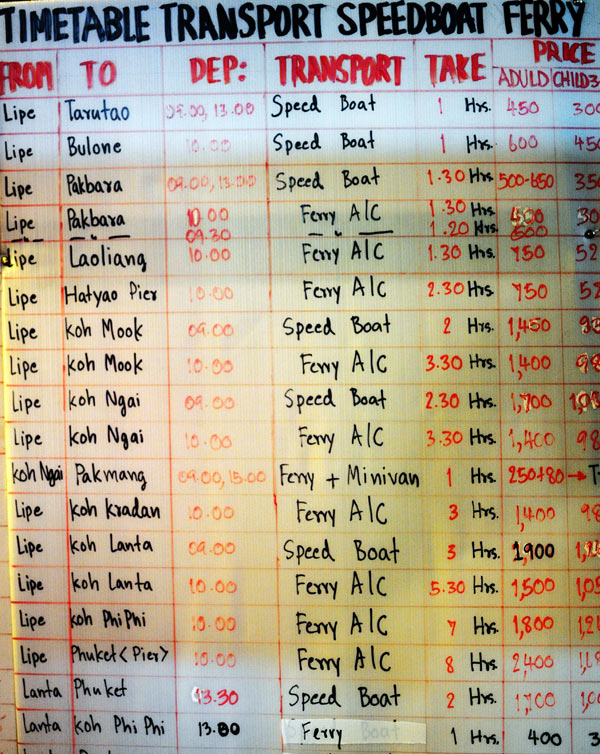 TIMETABLE TRANSPORT SPEEDBOAT FERRY
FROM TO DEP: TRANSPORT TAKE PRICE
ADULD CHILD3
Lipe Tarutao 09.00, 13.00 Speed Boat 1 Hrs. 450 300
Lipe Bulone 10.00 Speed Boat 1 Hrs. 600 450
Lipe Pakbara 09.00, 13.00 Speed Boat 1.30 Hrs. 500-650 350
Lipe Pakbara 10.00 Ferry A/C 1.30 Hrs. 30
09.30 1.20 Hrs. 600
Lipe Laoliang 10.00 Ferry A/C 1.30 Hrs. 750 52
Lipe Hatyao Pier 10.00 Ferry A/C 2.30 Hrs. 750 52
Lipe koh Mook 09.00 Speed Boat 2 Hrs. 1,450 98
Lipe koh Mook 10.00 Ferry A/C 3.30 Hrs. 1,400 98
Lipe koh Ngai 09.00 Speed Boat 2.30 Hrs. 1,700
Lipe koh Ngai 10.00 Ferry A/C 3.30 Hrs. 1,400 98
koh Ngai Pakmang 09.00, 15.00 Ferry + Minivan 1 Hrs. 250+80 → T
Lipe koh kradan 10.00 Ferry A/C 3 Hrs. 1,400 98
Lipe koh Lanta 09.00 Speed Boat 3 Hrs. 1,900
Lipe koh Lanta 10.00 Ferry A/C 5.30 Hrs. 1,500 1,05
Lipe koh Phi Phi 10.00 Ferry A/C 7 Hrs. 1,800 1,2
Lipe Phuket <Pier> 10.00 Ferry A/C 8 Hrs. 2,400
Lanta Phuket 13.30 Speed Boat 2 Hrs. 1,00
Lanta koh Phi Phi 13.00 Ferry Boat 1 Hrs. 400 3